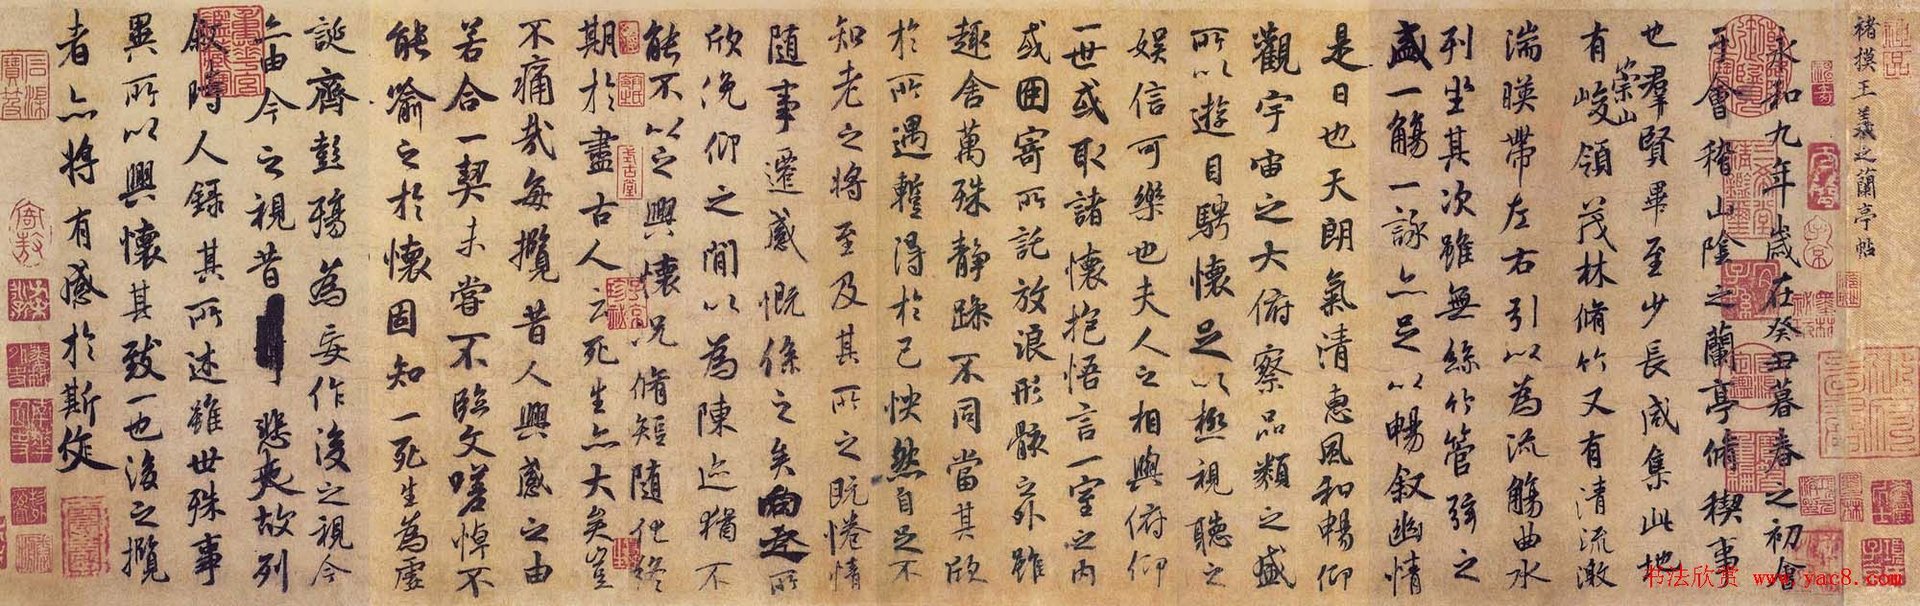 褚摸王羲之蘭亭帖
永和九年歲在癸丑暮春之初會
于會稽山陰之蘭亭脩稧事
也羣賢畢至少長咸集此地
有崇山峻領茂林脩竹又有清流激
湍暎帶左右引以為流觴曲水
列坐其次雖無絲竹管弦之
盛一觴一詠亦足以暢叙幽情
是日也天朗氣清惠風和暢仰
觀宇宙之大俯察品類之盛
所以遊目騁懷足以極視聽之
娛信可樂也夫人之相與俯仰
一世或取諸懷抱悟言一室之內
或因寄所託放浪形骸之外雖
趣舍萬殊静躁不同當其欣
於所遇蹔得於己怏然自足不
知老之將至及其所之既惓情
隨事遷感慨係之矣向之所
欣俛仰之閒以為陳迹猶不
能不以之興懷况脩短隨化終
期於盡古人云死生亦大矣豈
不痛哉每攬昔人興感之由
若合一契未嘗不臨文嗟悼不
能喻之於懷固知一死生為虛
誕齊彭殤為妄作後之視今
亦由今之視昔悲夫故列
叙時人錄其所述雖世殊事
異所以興懷其致一也後之攬
者亦將有感於斯作
书法欣赏 www.yac8.com